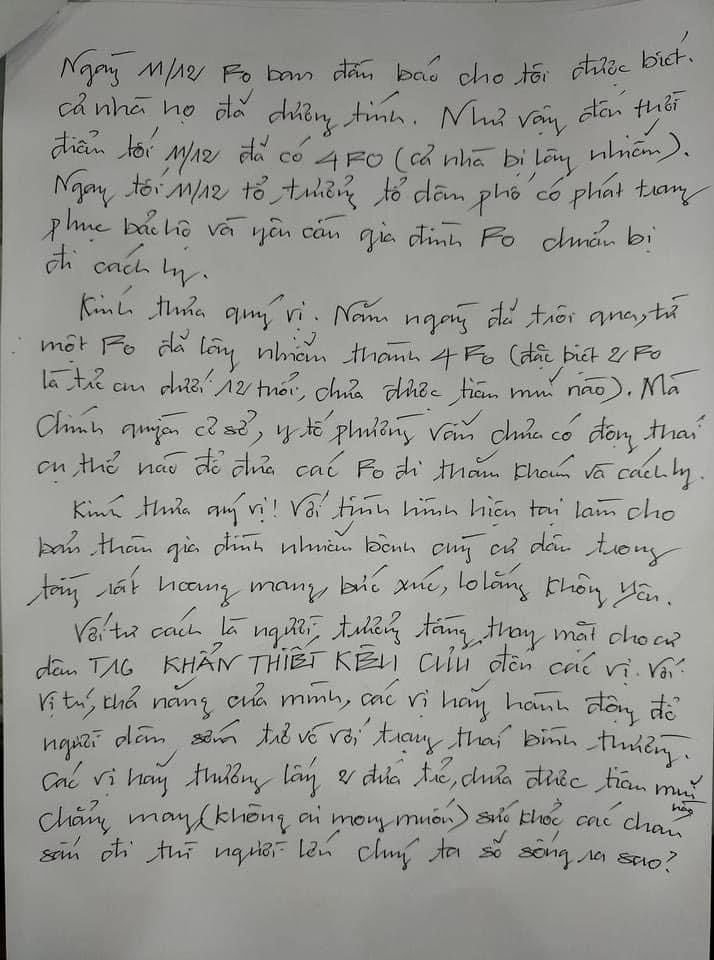 Ngày 11/12 F0 ban đầu báo cho tôi được biết.
cả nhà họ đã dương tính. Như vậy đến thời
điểm tối 11/12 đã có 4 F0 (cả nhà bị lây nhiễm).
Ngay tối 11/12 tổ trưởng tổ dân phố có phát trang
phục bảo hộ và yêu cầu gia đình F0 chuẩn bị
đi cách ly.
Kính thưa quý vị. Năm ngày đã trôi qua, từ
một F0 đã lây nhiễm thành 4 F0 (đặc biết 2 F0
là trẻ em dưới 12 tuổi, chưa được tiêm mũi nào). Mà
Chính quyền cơ sở, y tế phường vẫn chưa có động thái
cụ thể nào để đưa các F0 đi thăm khám và cách ly.
Kính thưa quý vị! Với tình hình hiện tại làm cho
bản thân gia đình nhiễm bệnh cùng cư dân trong
tầng rất hoang mang, bức xúc, lo lắng không yên.
Với tư cách là người trưởng tầng, thay mặt cho cư
dân T16 KHẨN THIẾT KÊU CỨU đến các vị. Với
vị trí, khả năng của mình, các vị hãy hành động để
người dân sớm trở về với trạng thái bình thường.
Các vị hãy thương lấy 2 đứa trẻ, chưa được tiêm mũi
nào
chẳng may (không ai mong muốn) sức khỏe các cháu
sấu đi thì người lớn chúng ta sẽ sống ra sao?